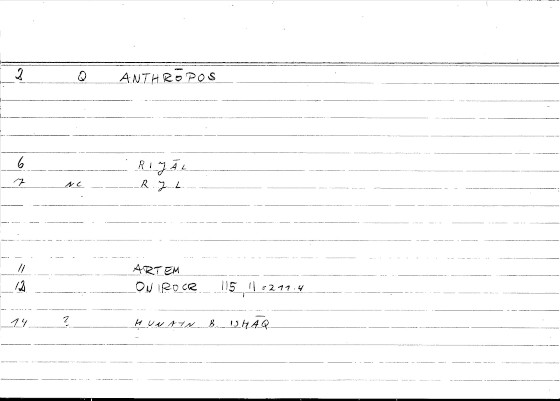 2 Q ANTHRŌPOS
6 RIJĀL
7 NC RJL
11 ARTEM
12 ONIROCR 115,11=211.4
14 ? HUNAYN B ISHĀQ